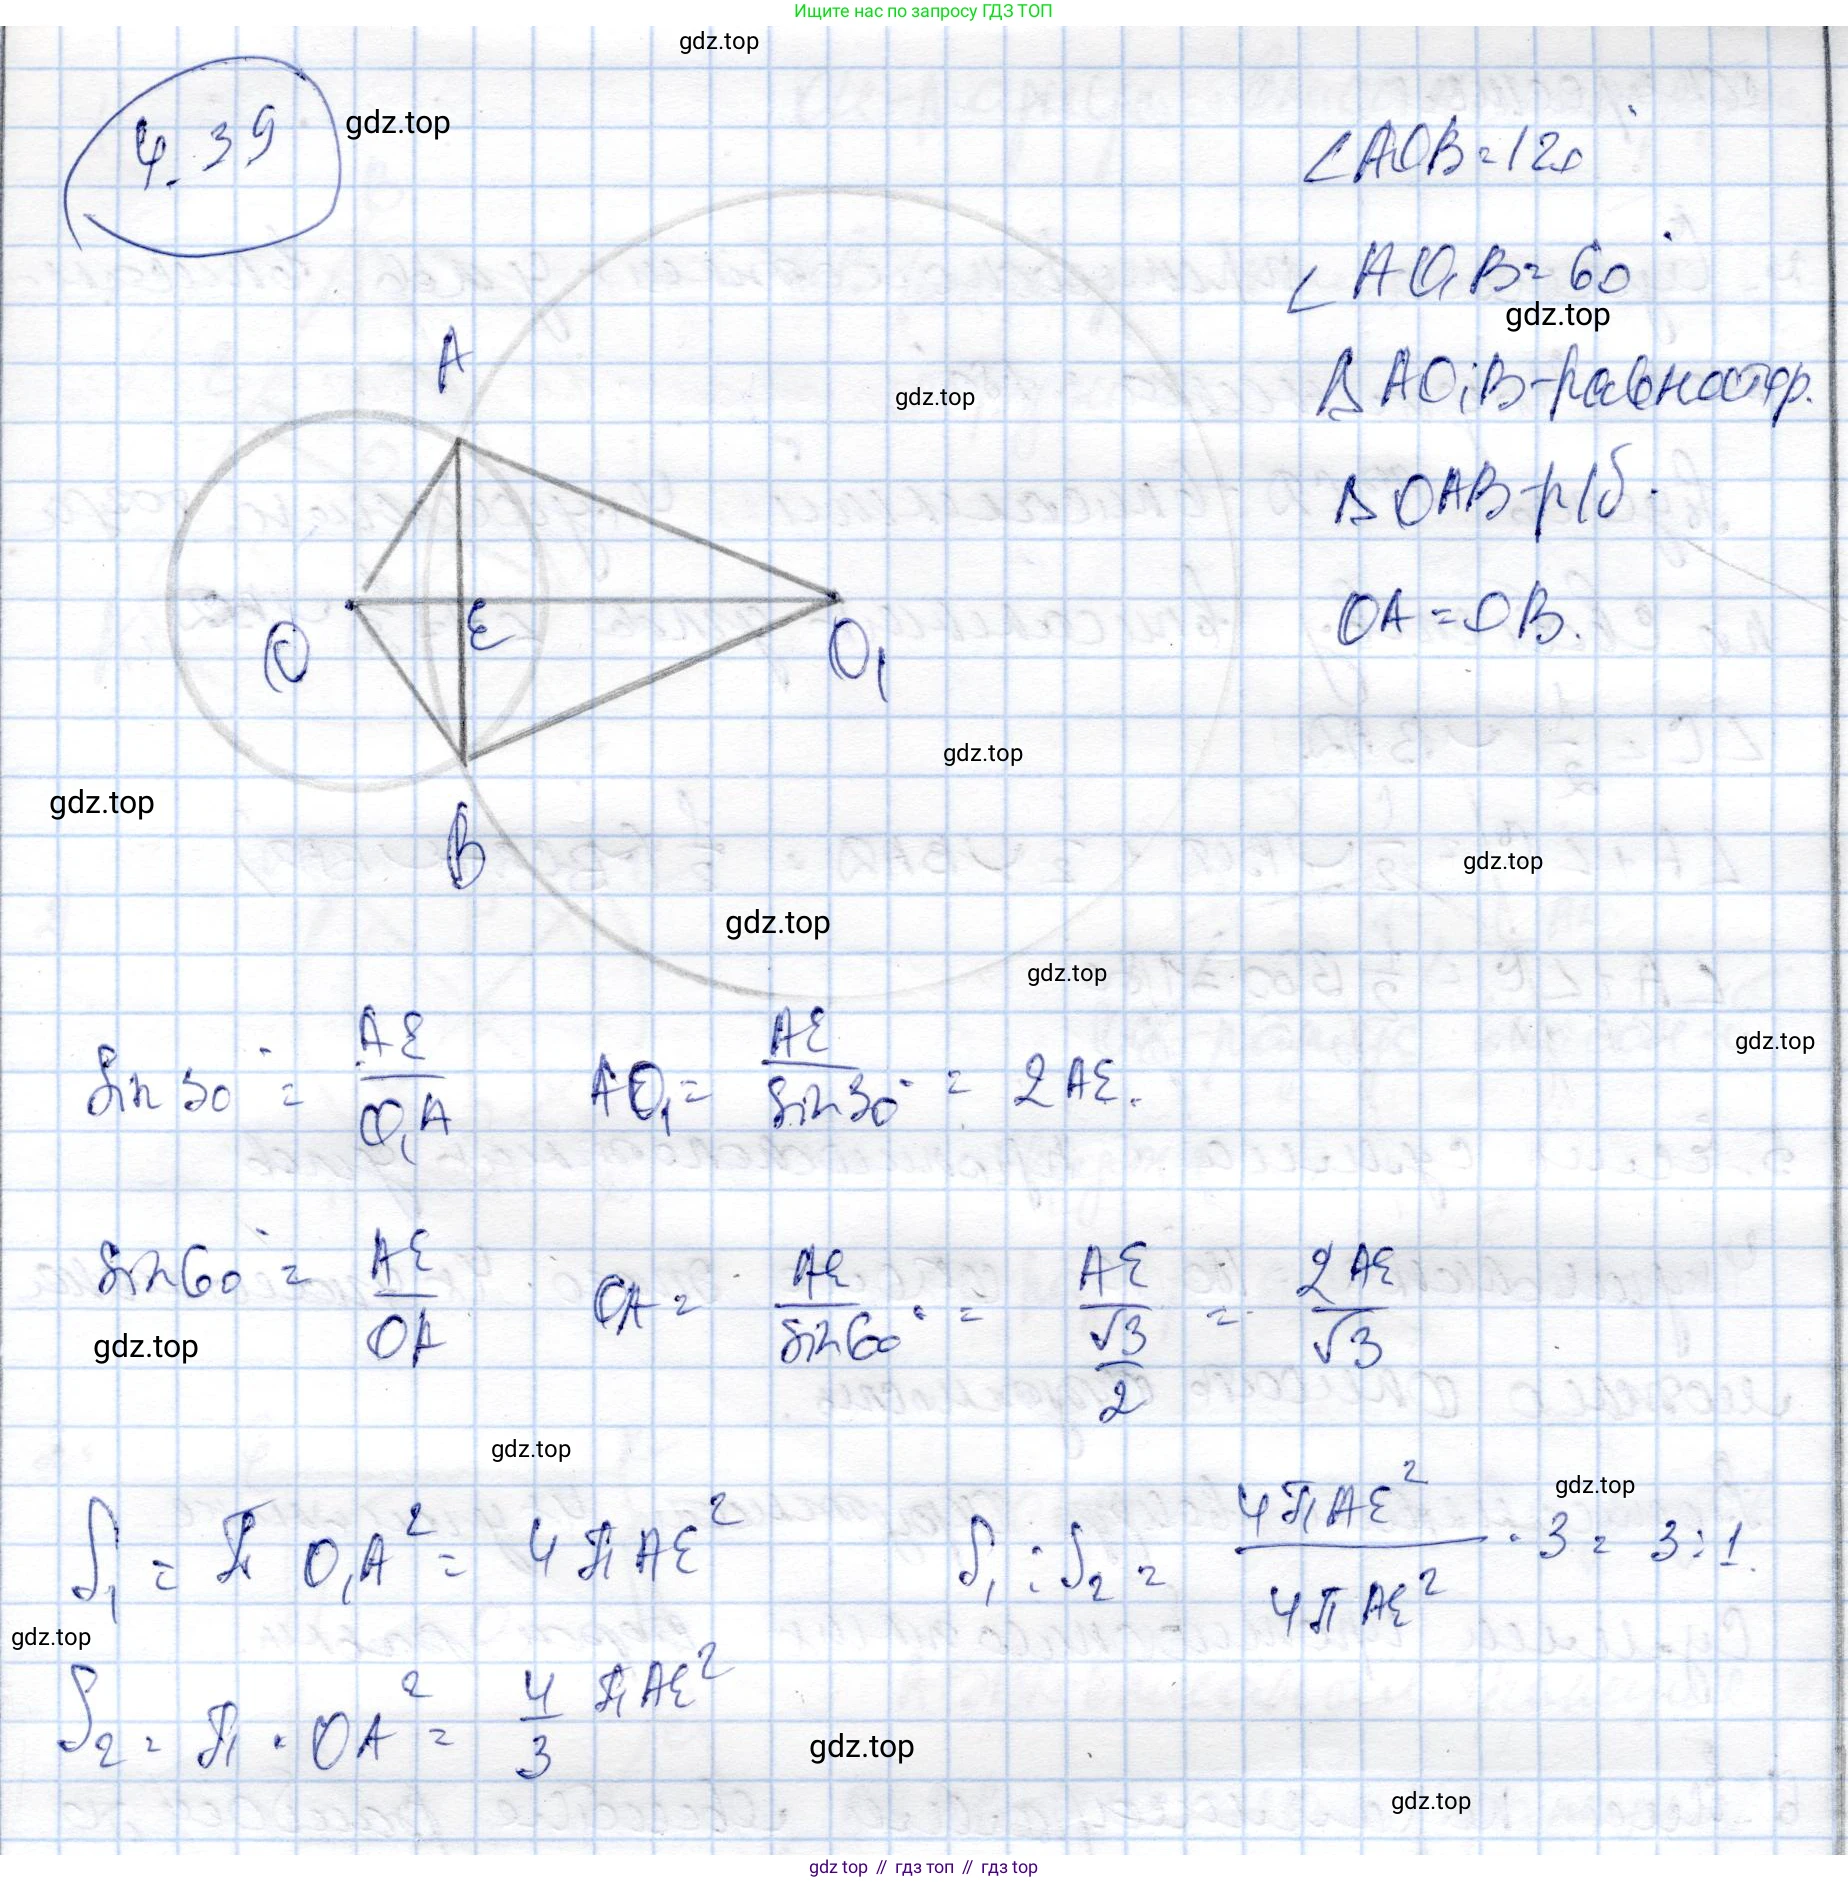 Ищите нас по запросу ГДЗ ТОП
gdz.top
4.39
gdz.top
∠AOB=120°
∠AO₁B=60°
gdz.top
Δ AO₁B-равностор.
gdz.top
Δ OAB-р/б.
OA=OB.
A
O
E
O₁
B
gdz.top
gdz.top
gdz.top
gdz.top
gdz.top
gdz.top
sin 30° = AE/O₁A   AO₁ = AE/sin30° = 2AE.
sin60° = AE/OA   OA = AE/sin60° = AE/(√3/2) = 2AE/√3
gdz.top
gdz.top
gdz.top
S₁ = π O₁A² = 4πAE²   S₁:S₂ = 4πAE²/4πAE² · 3 = 3:1.
gdz.top
S₂ = π · OA² = 4/3 πAE²
gdz.top
gdz.top
gdz top // гдз топ // гдз top